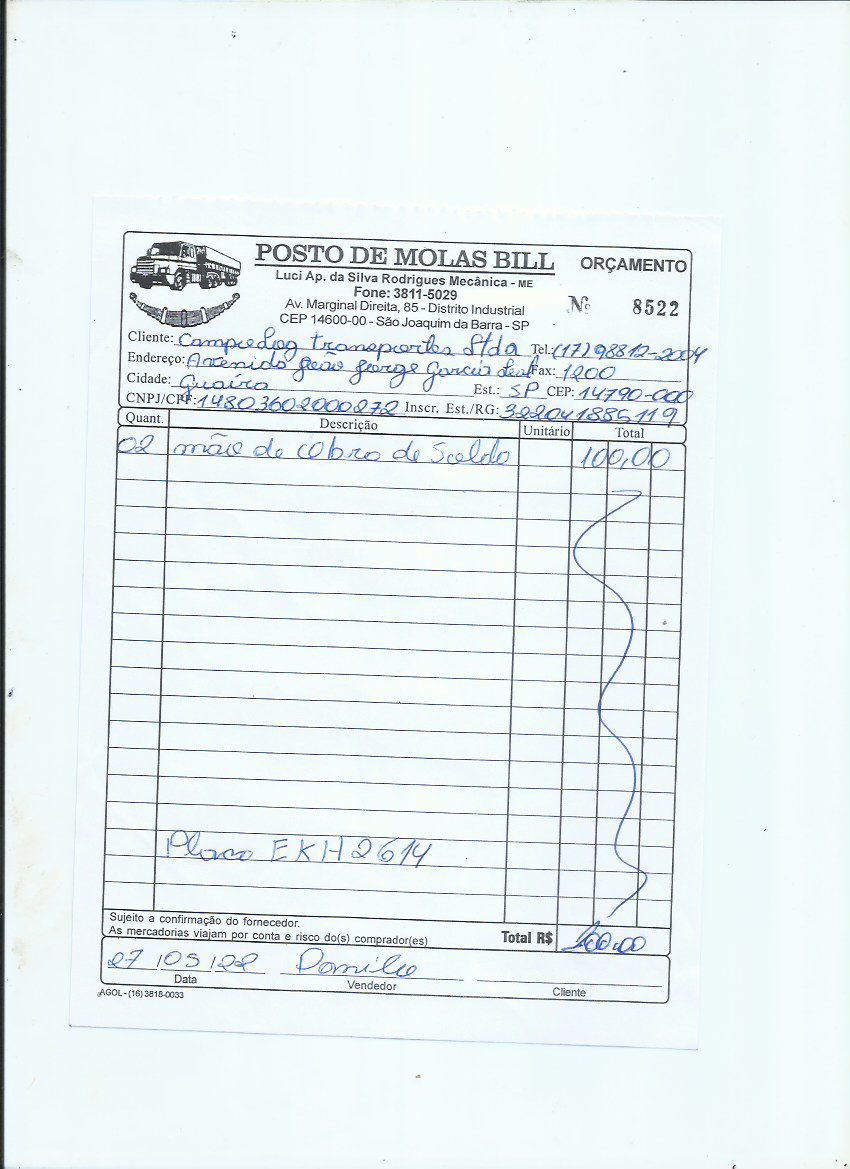 POSTO DE MOLAS BILL ORÇAMENTO
Luci Ap. da Silva Rodrigues Mecânica - ME
Fone: 3811-5029 Nº 8522
Av. Marginal Direita, 85 - Distrito Industrial
CEP 14600-00 - São Joaquim da Barra - SP
Cliente: Campeolog transportes Ltda Tel.: (17) 98812-2004
Endereço: Avenida João Jorge Garcia Leal Fax: 1200
Cidade: Guaíra Est.: SP CEP: 14790-000
CNPJ/CPF: 14803602000272 Inscr. Est./RG: 322041885119
Quant. Descrição Unitário Total
02 mão de Obra de Solda 100,00
Placa EKH2614
Sujeito a confirmação do fornecedor.
As mercadorias viajam por conta e risco do(s) comprador(es) Total R$ 100,00
27 / 05 / 22
Data Vendedor Cliente
AGOL - (16) 3818-0033